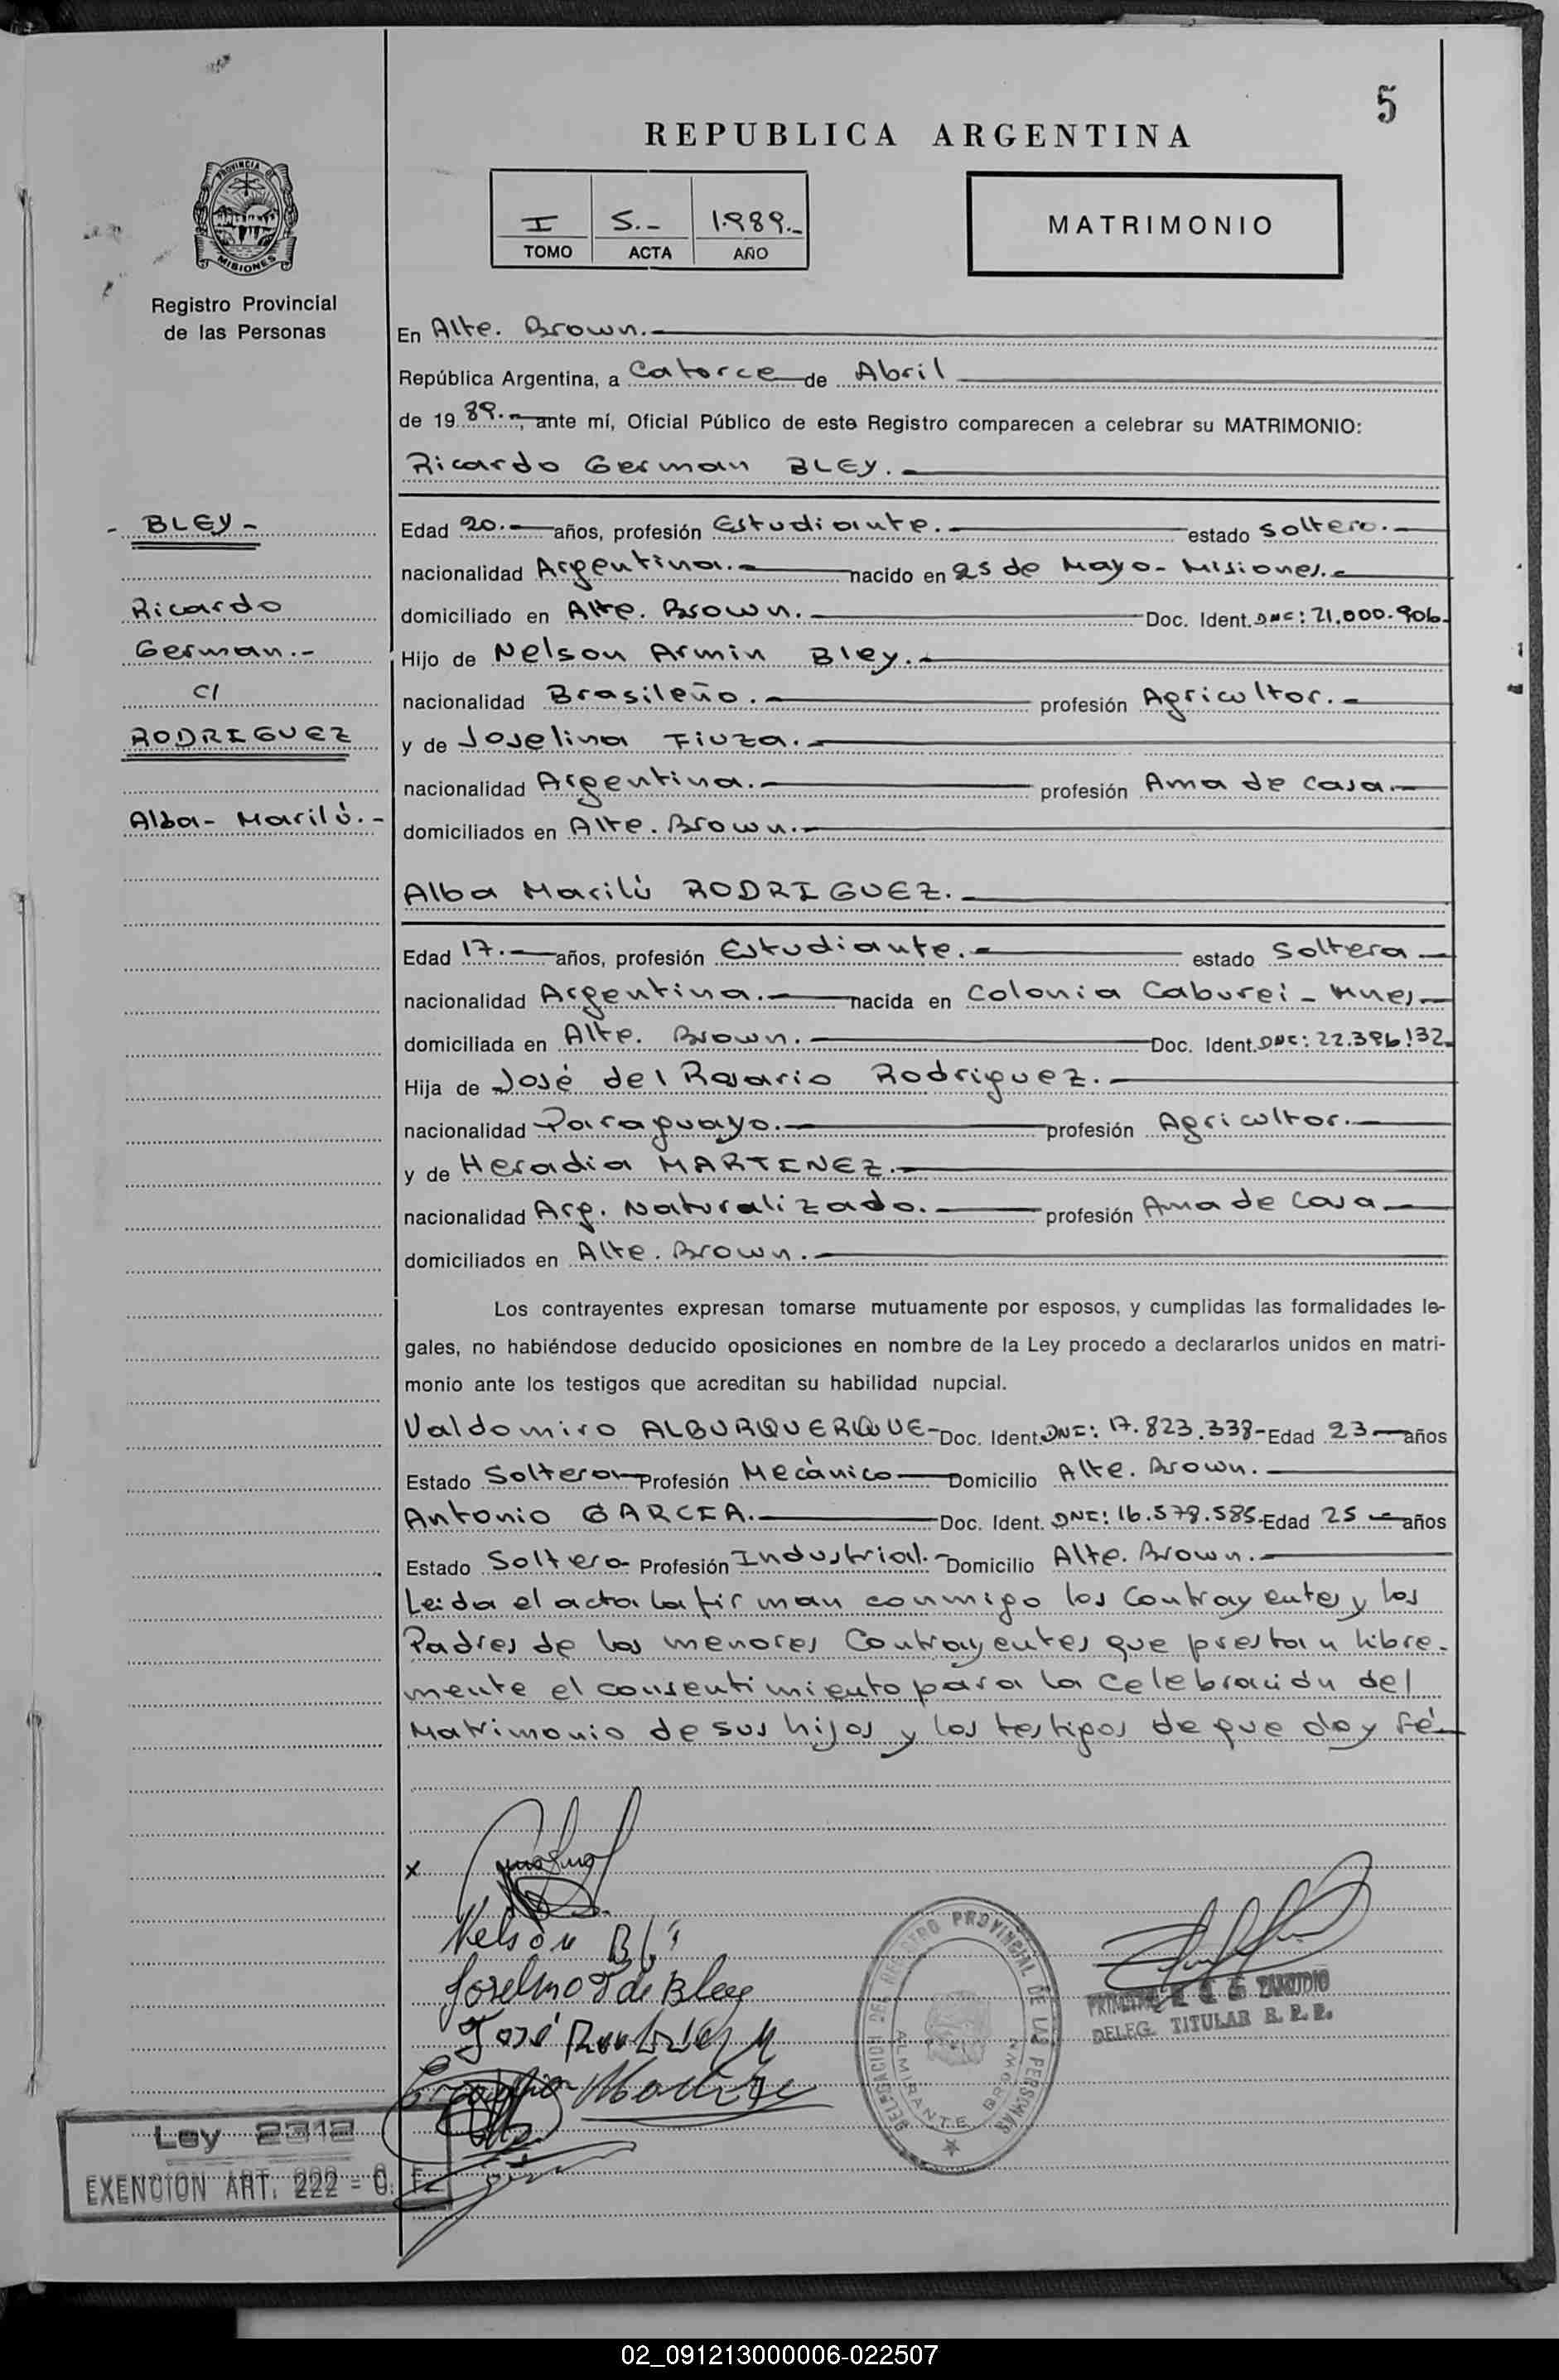 5
REPUBLICA ARGENTINA
PROVINCIA DE
MISIONES
I 5.- 1.989.-
TOMO ACTA AÑO
MATRIMONIO
Registro Provincial
de las Personas
En Alte. Brown.-
República Argentina, a Catorce de Abril
de 19 89.-, ante mí, Oficial Público de este Registro comparecen a celebrar su MATRIMONIO:
Ricardo German BLEY.-
- BLEY -
Ricardo
German.-
C/
RODRIGUEZ
Alba- Marilú.-
Edad 20.- años, profesión Estudiante.- estado Soltero.-
nacionalidad Argentina.- nacido en 25 de Mayo- Misiones.-
domiciliado en Alte. Brown.- Doc. Ident. DNI: 21.000.906-
Hijo de Nelson Armin Bley.-
nacionalidad Brasileño.- profesión Agricultor.-
y de Joselina Fiuza.-
nacionalidad Argentina.- profesión Ama de Casa.-
domiciliados en Alte. Brown.-
Alba Marilú RODRIGUEZ.-
Edad 17.- años, profesión Estudiante.- estado Soltera -
nacionalidad Argentina.- nacida en Colonia Caburei - Mnes-
domiciliada en Alte. Brown.- Doc. Ident. DNI: 22.396.132-
Hija de José del Rosario Rodriguez.-
nacionalidad Paraguayo.- profesión Agricultor.-
y de Heradia MARTINEZ.-
nacionalidad Arg. Naturalizado.- profesión Ama de Casa -
domiciliados en Alte. Brown.-
Los contrayentes expresan tomarse mutuamente por esposos, y cumplidas las formalidades le-
gales, no habiéndose deducido oposiciones en nombre de la Ley procedo a declararlos unidos en matri-
monio ante los testigos que acreditan su habilidad nupcial.
Valdomiro ALBURQUERQUE- Doc. Ident. DNI: 17.823.338- Edad 23 - años
Estado Soltero- Profesión Mecànico - Domicilio Alte. Brown.-
Antonio GARCIA.- Doc. Ident. DNI: 16.578.585- Edad 25 - años
Estado Soltero- Profesión Industrial.- Domicilio Alte. Brown.-
Leida el acta la firman conmigo los Contrayentes y los
Padres de los menores Contrayentes que prestan libre-
mente el consentimiento para la Celebración del
Matrimonio de sus hijos y los testigos de que doy Fé-
x
Nelson
de Bley
José
DELEGACION DEL REGISTRO PROVINCIAL DE LAS PERSONAS
ALMIRANTE BROWN
ZAMUDIO
DELEG. TITULAR R. P. P.
Ley 2312
EXENCION ART. 222 = C. F.
02_091213000006-022507